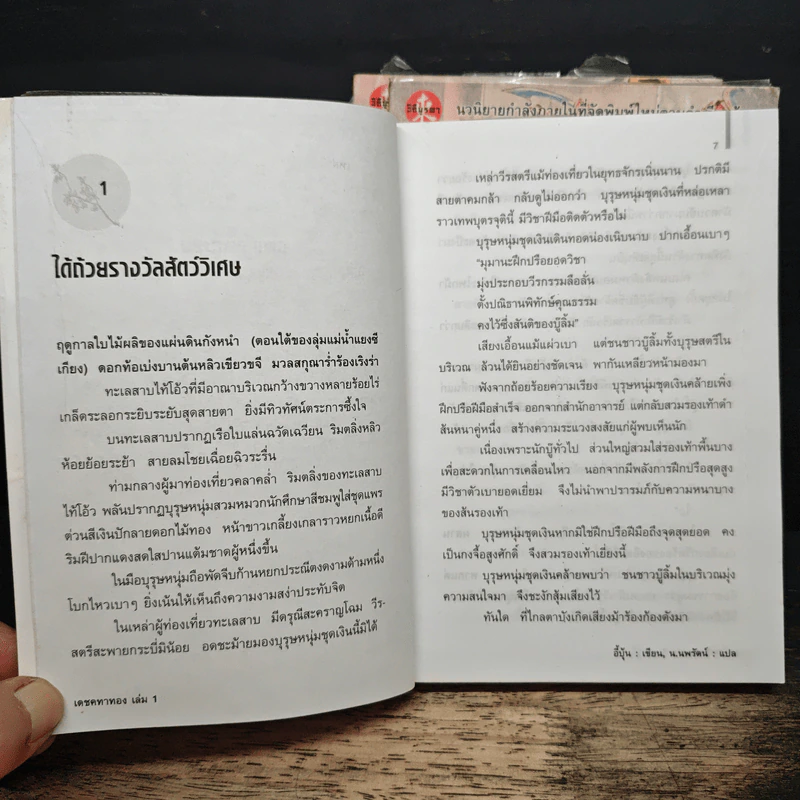 นวนิยายกำลังภายในที่จัดพิมพ์ใหม่
1
ได้ถ้วยรางวัลสัตว์วิเศษ
ฤดูกาลใบไม้ผลิของแผ่นดินกังหนำ (ตอนใต้ของลุ่มแม่น้ำแยงซี
เกียง) ดอกท้อเบ่งบานต้นหลิวเขียวขจี มวลสกุณาร่ำร้องเริงร่า
ทะเลสาบไท้โอ้วที่มีอาณาบริเวณกว้างขวางหลายร้อยไร่
เกล็ดระลอกระยิบระยับสุดสายตา ยิ่งมีทิวทัศน์ตระการซึ้งใจ
บนทะเลสาบปรากฏเรือใบแล่นฉวัดเฉวียน ริมตลิ่งหลิว
ห้อยย้อยระย้า สายลมโชยเฉื่อยฉิวระรื่น
ท่ามกลางผู้มาท่องเที่ยวคลาคล่ำ ริมตลิ่งของทะเลสาบ
ไท้โอ้ว พลันปรากฏบุรุษหนุ่มสวมหมวกนักศึกษาสีชมพูใส่ชุดแพร
ต่วนสีเงินปักลายดอกไม้ทอง หน้าขาวเกลี้ยงเกลาราวหยกเนื้อดี
ริมฝีปากแดงสดใสปานแต้มชาดผู้หนึ่งขึ้น
ในมือบุรุษหนุ่มถือพัดจีบก้านหยกประณีตงดงามด้ามหนึ่ง
โบกไหวเบาๆ ยิ่งเน้นให้เห็นถึงความงามสง่าประทับจิต
ในเหล่าผู้ท่องเที่ยวทะเลสาบ มีดรุณีสะคราญโฉม วีร-
สตรีสะพายกระบี่มิน้อย อดชะม้ายมองบุรุษหนุ่มชุดเงินนี้มิได้
เดชคทาทอง เล่ม 1
7
เหล่าวีรสตรีแม้ท่องเที่ยวในยุทธจักรเนิ่นนาน ปรกติมี
สายตาคมกล้า กลับดูไม่ออกว่า บุรุษหนุ่มชุดเงินที่หล่อเหลา
ราวเทพบุตรจุตินี้ มีวิชาฝีมือติดตัวหรือไม่
บุรุษหนุ่มชุดเงินเดินทอดน่องเนิบนาบ ปากเอื้อนเบาๆ
"มุมานะฝึกปรือยอดวิชา
มุ่งประกอบวีรกรรมลือลั่น
ตั้งปณิธานพิทักษ์คุณธรรม
คงไว้ซึ่งสันติของบู๊ลิ้ม"
เสียงเอื้อนแม้แผ่วเบา แต่ชนชาวบู๊ลิ้มทั้งบุรุษสตรีใน
บริเวณ ล้วนได้ยินอย่างชัดเจน พากันเหลียวหน้ามองมา
ฟังจากถ้อยร้อยความเรียง บุรุษหนุ่มชุดเงินคล้ายเพิ่ง
ฝึกปรือฝีมือสำเร็จ ออกจากสำนักอาจารย์ แต่กลับสวมรองเท้าดำ
ส้นหนาคู่หนึ่ง สร้างความระแวงสงสัยแก่ผู้พบเห็นนัก
เนื่องเพราะนักบู๊ทั่วไป ส่วนใหญ่สวมใส่รองเท้าพื้นบาง
เพื่อสะดวกในการเคลื่อนไหว นอกจากมีพลังการฝึกปรือสุดสูง
มีวิชาตัวเบายอดเยี่ยม จึงไม่นำพาปรารมภ์กับความหนาบาง
ของส้นรองเท้า
บุรุษหนุ่มชุดเงินหากมิใช่ฝึกปรือฝีมือถึงจุดสุดยอด คง
เป็นกงจื้อสูงศักดิ์ จึงสวมรองเท้าเยี่ยงนี้
บุรุษหนุ่มชุดเงินคล้ายพบว่า ชนชาวบู๊ลิ้มในบริเวณมุ่ง
ความสนใจมา จึงชะงักสุ้มเสียงไว้
ทันใด ที่ไกลตาบังเกิดเสียงม้าร้องก้องดังมา
อี้บุ้น : เขียน, น.นพรัตน์ : แปล